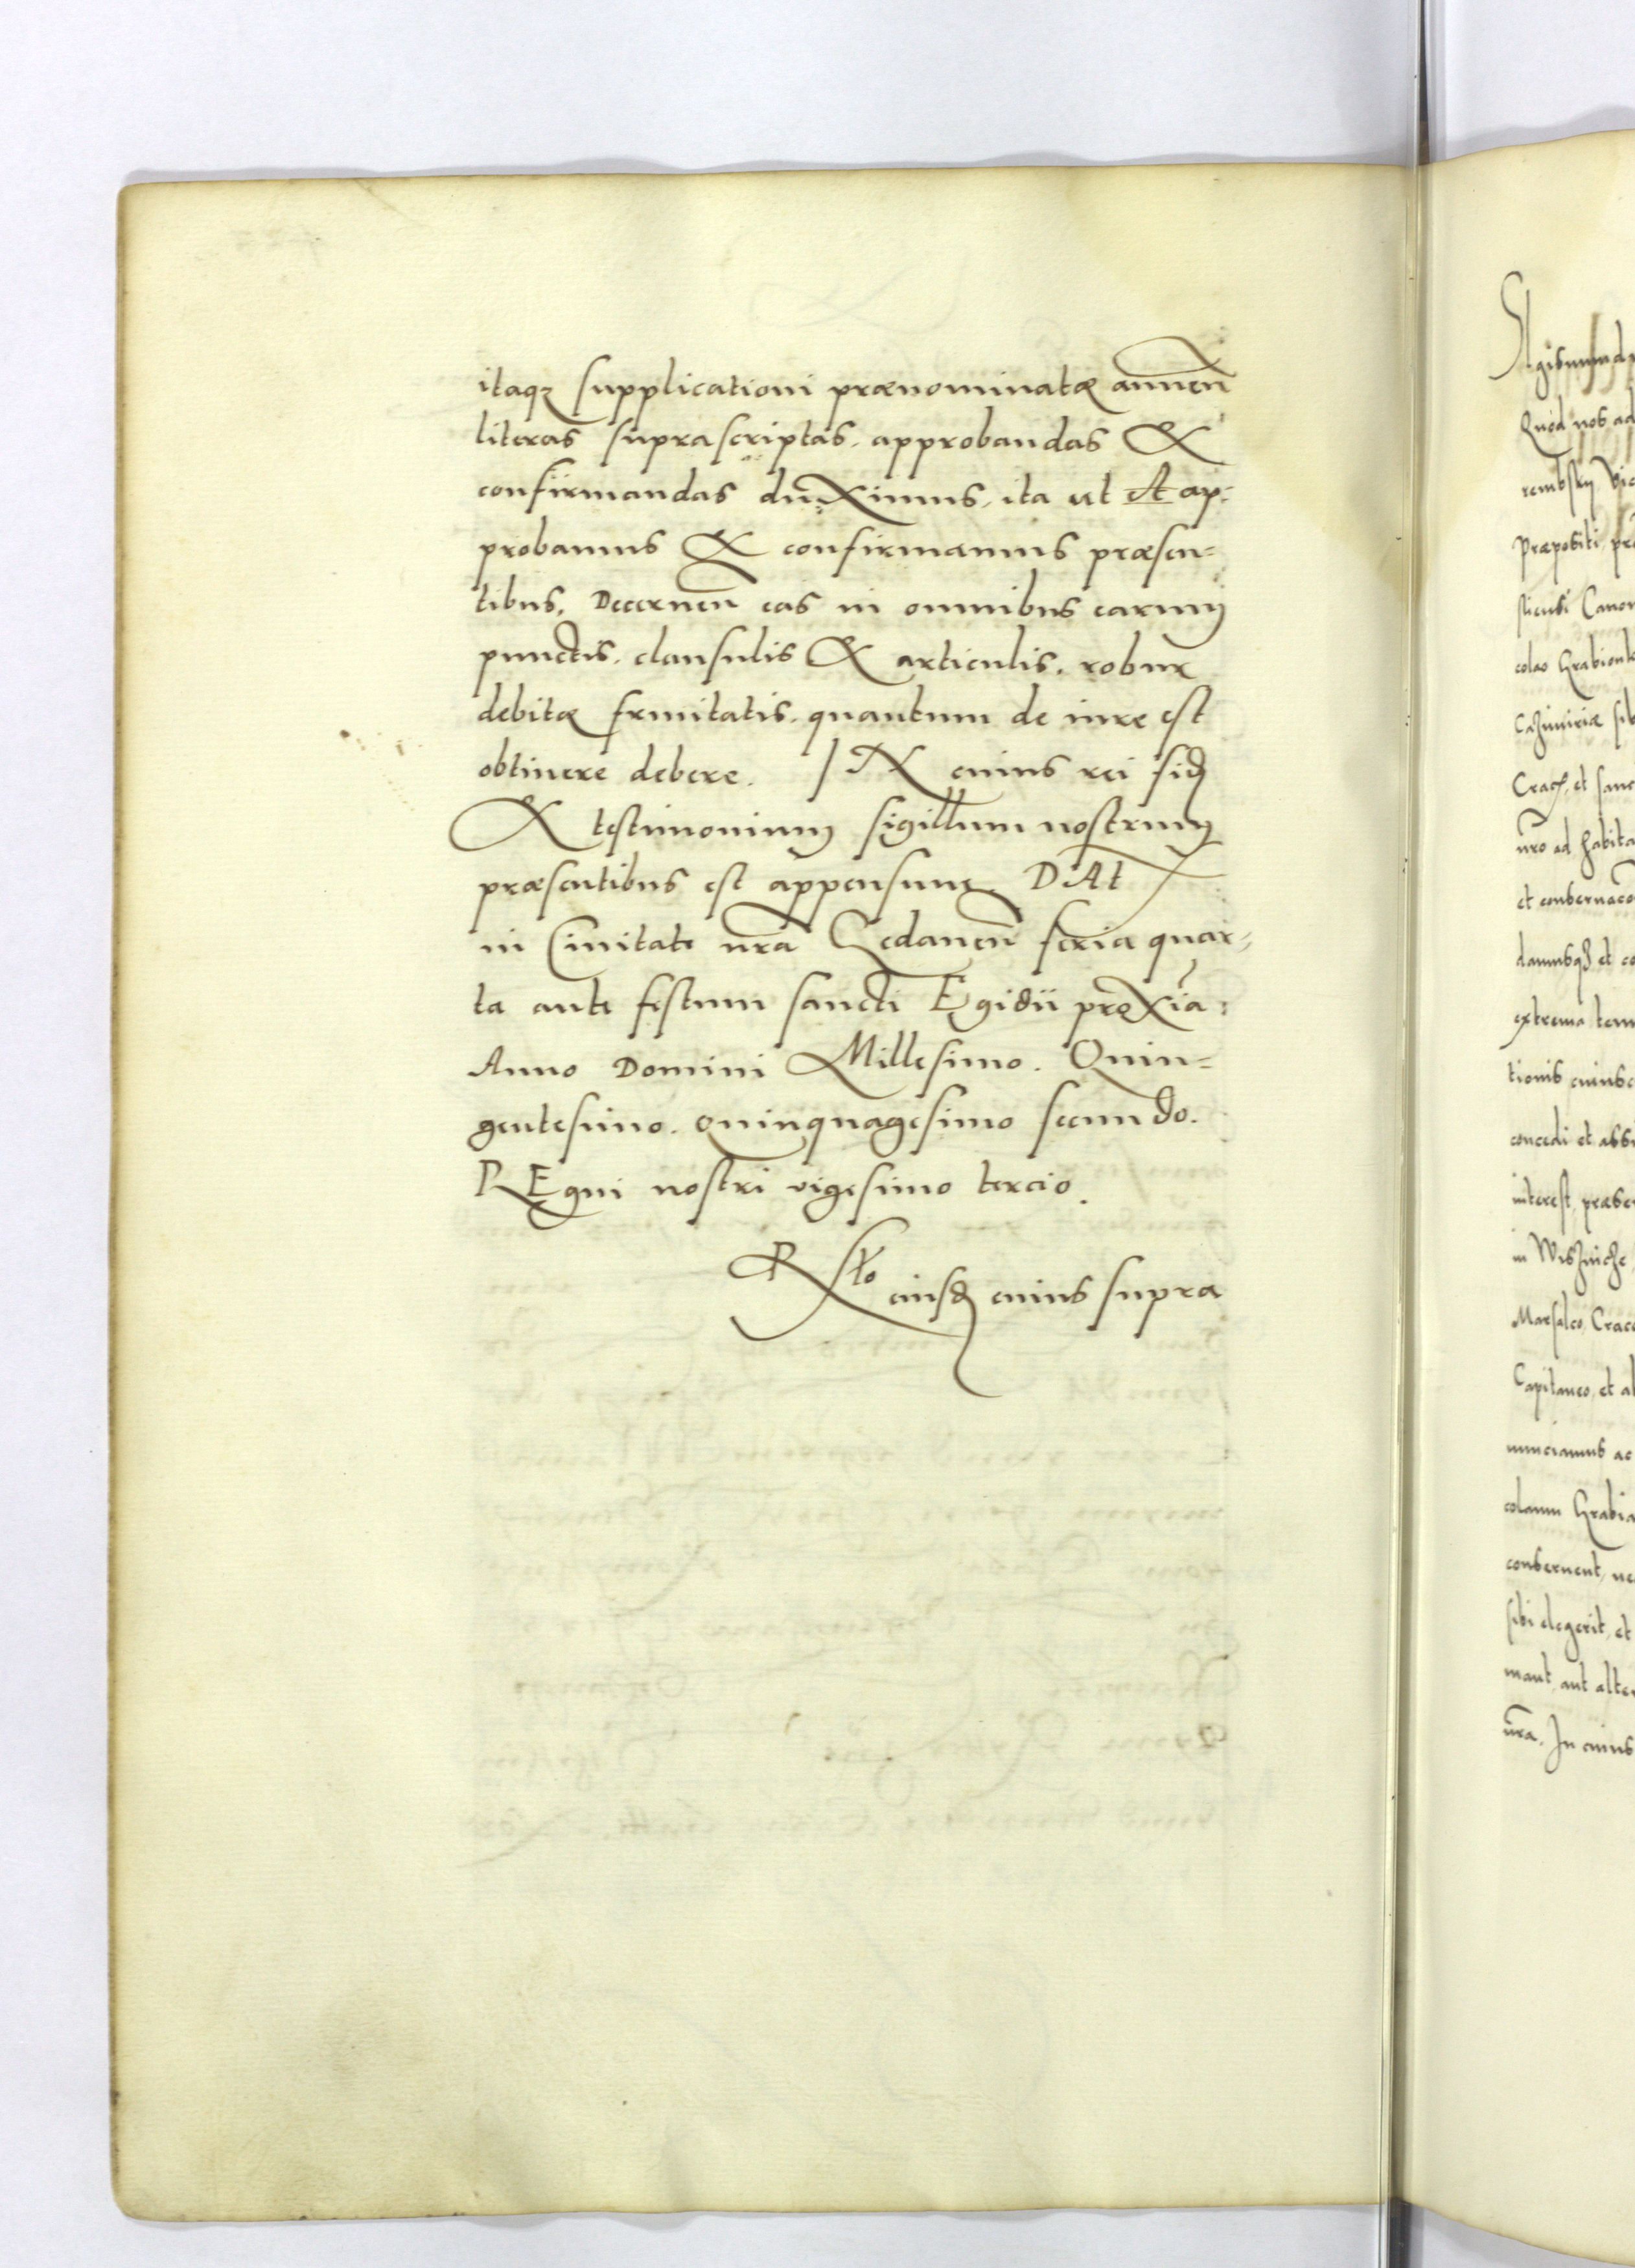 itaq; supplicationi prænominatæ annuen̄
literas suprascriptas, approbandas &
confirmandas duximus, ita ut At ap:
probamus & confirmamus præsen=
tibus, Decernen̄ eas in omnibus earum
punctis, clausulis & articulis, robur
debitæ firmitatis, quantum de iure est
obtinere debere. IN cuius rei fidē
& testimonium sigillum nostrum
præsentibus est appensum. DAt
in Ciuitate nr̄a Gedanen̄ feria quar=
ta ante festum sancti Egidii proxīa:
Anno Domini Millesimo. Quin=
gentesimo. quinquagesimo secundo.
REgni nostri vigesimo tercio.
Rl̄o eiusdē cuius supra
Sigismund
Quod nos ad
rembsky Vic
Præpositi
sticensi Canon
colao Grabionk
Cazimiriæ sib
Crac, et sanc
nr̄o ad habita
et conseruaco
damusq; et co
extrema tem
tionis cuiusc
concedi et assi
interest, præse
in Wisznicze
Marsalco, Craco
Capitaneo, et al
nunciamus ac
colaum Grabia
conseruent, ne
sibi elegerit, et
mant, aut alter
nr̄a. In cuius